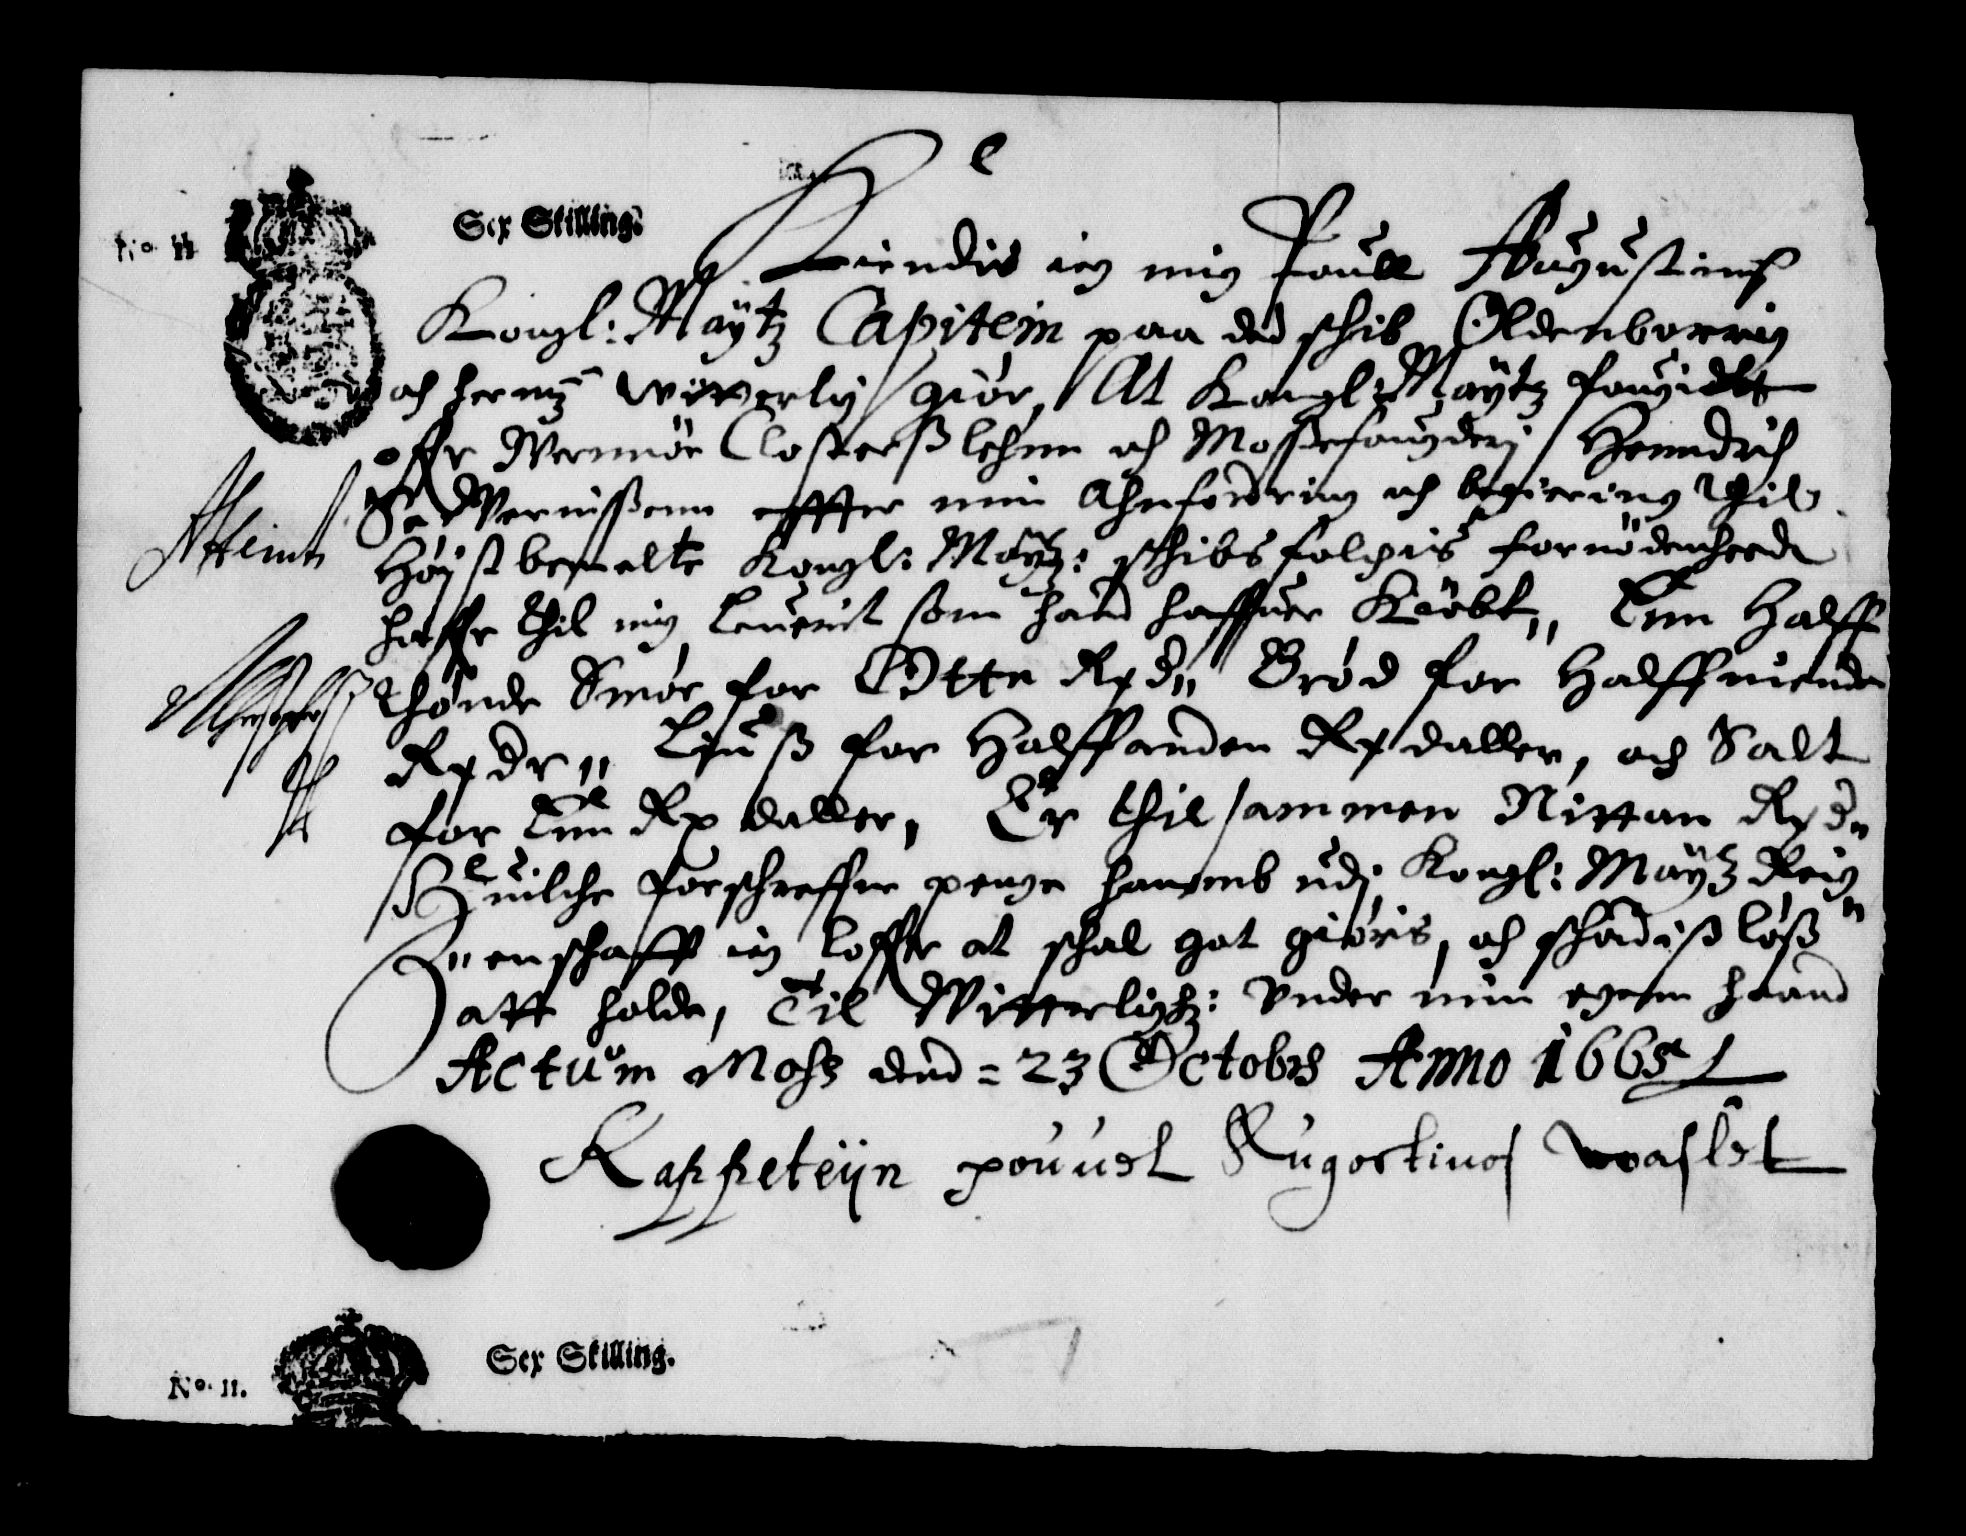 No. 11
Sex Skilling.
Kiendis ieg mig Pouell Augustinuß
Kongl: Maÿtz Capitein paa ded schib Oldenborrig
och hermz witterlig giör, At Kongl: Maÿtz fougidtt
ofr Wernnöe Closterß lehnn och Mosse fougderj Henndrich
Sörwernißenn effter min Ahnfordring och begiering Thil
Höÿstbemelte Kongl: Maÿtz: schibs folchis fornödenheede
haffr thil mig leuerit som hand haffuer Kiöbt,, Enn Halff
thönde Smör for Otte Rxd,, Bröd for Halffniende
Rxdr,, Liuß for Halffanden Rxdaller, och Salt
for Enn Rxdaller, Er thilsammen Nittan Rxd,,
Huilche forschreffne penge hannemb udj Kongl: Maÿtz Reig
,,enschaff ieg loffer at schal got giöris, och schadisslöß
att holde, Til Witterlighz: Vnder min egenn haand
Actum Moss dend = 23 Octobris Anno 1665
Kappeteijn pouuel Augostinos
No. 11.
Sex Skilling.